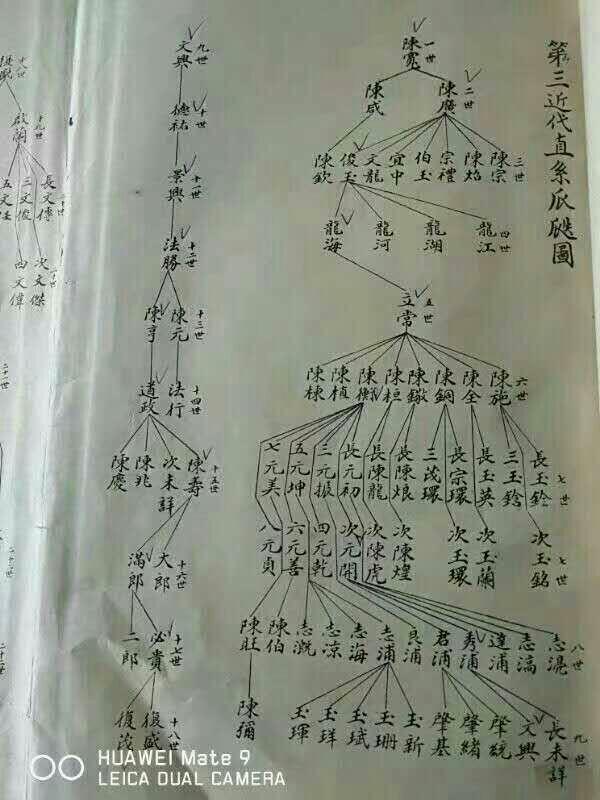 第三近代直系瓜瓞圖
一世
陳寬
二世
陳廣
陳咸
三世
陳宗
陳焰
宗禮
伯玉
宜中
文龍
俊玉
陳欽
四世
龍江
龍湖
龍河
龍海
五世
立常
六世
陳施
陳全
陳鋼
陳鏾
陳桓
陳衡
陳楨
陳棟
七世
長玉銓
三玉鎗
長玉英
長宗環
三茂環
長陳烺
長陳龍
長元初
三元振
五元坤
七元美
七世
次玉銘
次玉蘭
次玉環
次陳煌
次陳虎
次元開
四元乾
六元善
八元貞
八世
志混
志滈
達浦
秀浦
君浦
良浦
志浦
志海
志凉
志溉
陳伯
陳旺
九世
長未詳
文興
肇統
肇緒
肇基
玉新
玉珊
玉斌
玉珜
玉琿
陳彌
九世
文興
十世
德祐
十一世
景興
十二世
法勝
十三世
陳元
陳亨
十四世
法行
道政
十五世
陳壽
次未詳
陳兆
陳慶
十六世
大郎
滿郎
十七世
必貴
二郎
十八世
復盛
復茂
十八世
十九世
啟蘭
長文傳
三文俊
五文任
次文傑
四文偉
二十一世
HUAWEI Mate 9
LEICA DUAL CAMERA